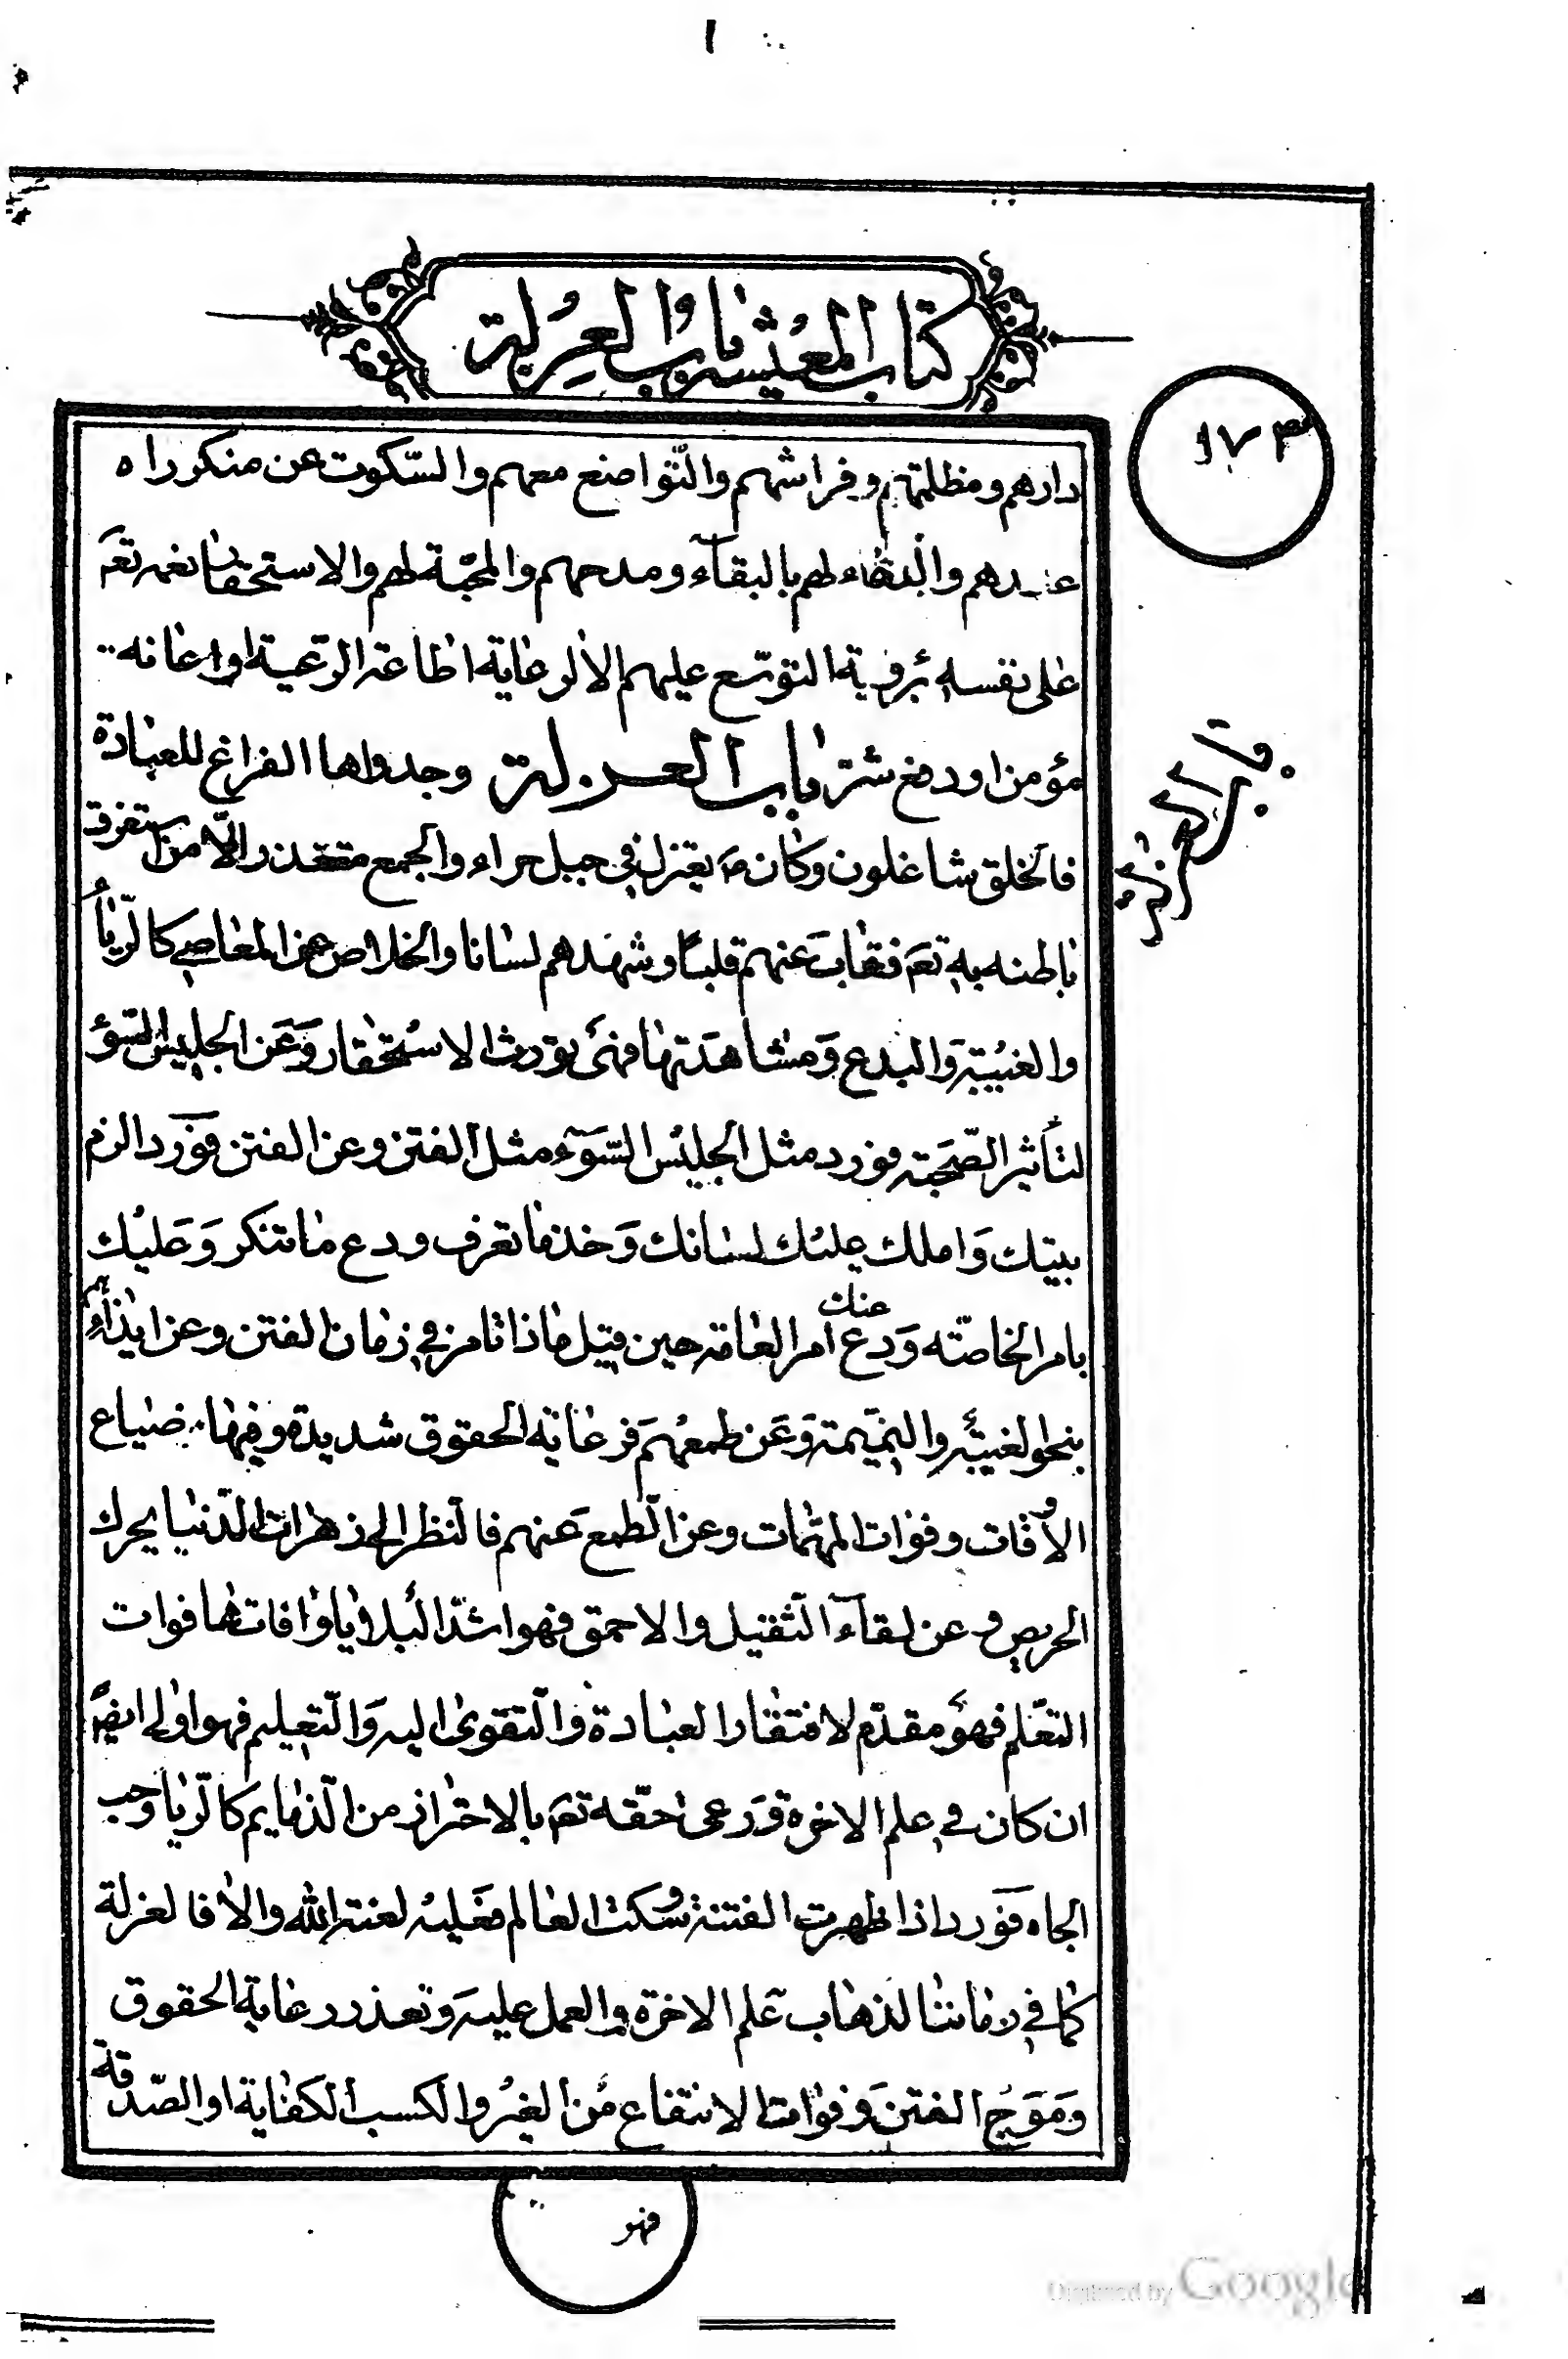 كتاب المعيشة باب العزلة
١٧٣
دارهم ومظلتهم وفراشهم والتّواضع معهم والسّكوت عن منكر راه
عندهم والدّعاء لهم بالبقآء ومدحهم والمحبّة لهم والاستحقار نعمه تعَ
على نفسه برؤية التوسّع عليهم الا لرعاية اطاعة الرّعية او اعانه
مؤمن او دفع شتر باب العزلة وجدواها الفراغ للعبادة
فالخلق شاغلون وكان صَ يعتزل في جبل حراء والجمع متعذر الّا من استغرق
باطنه به تعَ فغابَ عنهم قلبًا وشهدهم لسانا والخلاص عن المعاصي كالرّياءُ
والغيبة وَالبدع وَمشاهدتها فهيَ يورث الاستحقار وَعَن الجليس السّوءِ
لتأثير الصّحبة فورد مثل الجليس السّوَءِ مثل القتن وعن الفتن فوَرد الزم
بيتك وَاملك عليك لسانك وَخذ ما تعرف ودع ما تنكر وَعَليك
بامر الخاصّه وَدع عنك امر العامة حين قيل ماذا تامر في زمان الفتن وعن ايذائهم
بنحو الغيبة والنميمة وَعَن طمعهم فرعاية الحقوق شديدة وفيها ضياع
الأوقات وفوات المهمّات وعن الطّمع عنهم فالنظر الى زهرات الدّنيا يحرك
الحريص وعن لقآء الثّقيل والاحمق فهو اشدّ البلايا وافاتها فوات
التعّلم فهوَ مقدّم لافتقار العبادة والتّقوى اليه وَالتّعليم فهو اولى ايضًا
ان كان في علم الاخرة وَرعى حقّه تعَ بالاحتراز من الذمايم كالرّيا وحب
الجاه فوَرد اذا ظهرت الفتنة وسكت العالم فعليه لعنة الله والا فالعزلة
كما في زماننا لذهاب عَلم الاخرة والعمل عليه وَتعذر رعاية الحقوق
وَمَوَج الفتن وَفوات الانتفاع من الغير والكسب الكفاية او الصّدقة
فهو
Digitized by Google